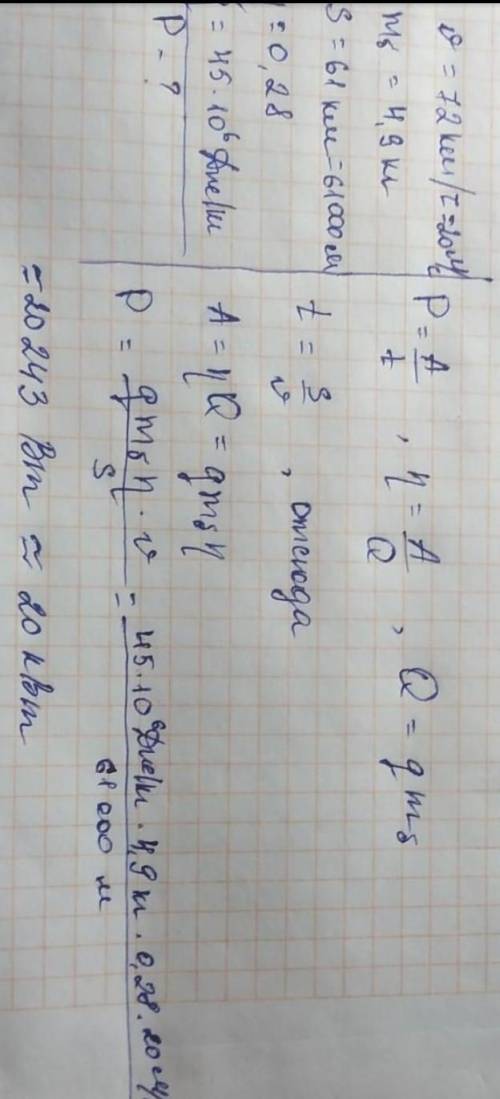 𝜗 = 72 км/ч = 20 м/с
mб = 4,9 кг
S = 61 км = 61000 м
= 0,28
= 45·10⁶ Дж/кг
P - ?
P = A/t , η = A/Q , Q = q mб
t = S/𝜗 , отсюда
A = ηQ = q mб η
P = q mб η · 𝜗 / S = 45·10⁶ Дж/кг · 4,9 кг · 0,28 · 20 м/ / 61 000 м
= 20243 Вт ≈ 20 кВт